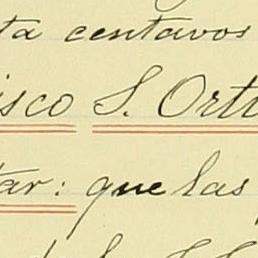 ta centavos
isco S. Ortu
tar: que las